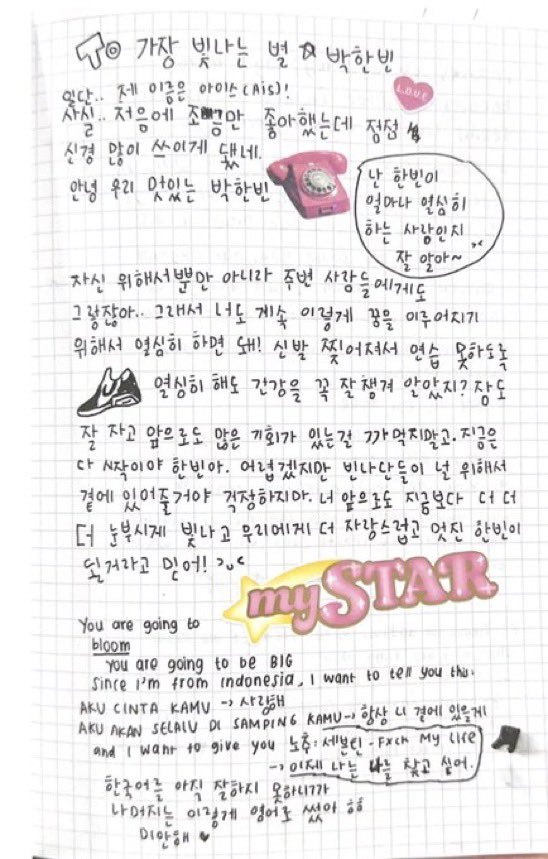 To 가장 빛나는 별 ☆ 박한빈
일단.. 제 이름은 아이스(Ais)!
사실.. 처음에 조금만 좋아했는데 점점
신경 많이 쓰이게 됐네.
안녕 우리 멋있는 박한빈
L.O.V.E
난 한빈이
얼마나 열심히
하는 사람인지
잘 알아~
자신 위해서뿐만 아니라 주변 사람들에게도
그렇잖아.. 그래서 너도 계속 이렇게 꿈을 이루어지기
위해서 열심히 하면 돼! 신발 찢어져서 연습 못하도록
열심히 해도 건강을 꼭 잘챙겨 알았지? 잠도
잘 자고 앞으로도 많은 기회가 있는걸 까먹지말고. 지금은
다 시작이야 한빈아. 어렵겠지만 빈나단들이 널 위해서
곁에 있어줄거야 걱정하지마. 너 앞으로도 지금보다 더 더
더 눈부시게 빛나고 우리에게 더 자랑스럽고 멋진 한빈이
될거라고 믿어!
my STAR
You are going to
bloom
You are going to be BIG
Since I'm from Indonesia, I want to tell you this.
AKU CINTA KAMU → 사랑해
AKU AKAN SELALU DI SAMPING KAMU → 항상 니 곁에 있을게
and I want to give you 노추: 세븐틴 - Fxck My Life
→ 이제 나는 나를 찾고 싶어.
한국어를 아직 잘하지 못하니까
나머지는 이렇게 영어로 썼아 ㅎㅎ
미안해 ♥